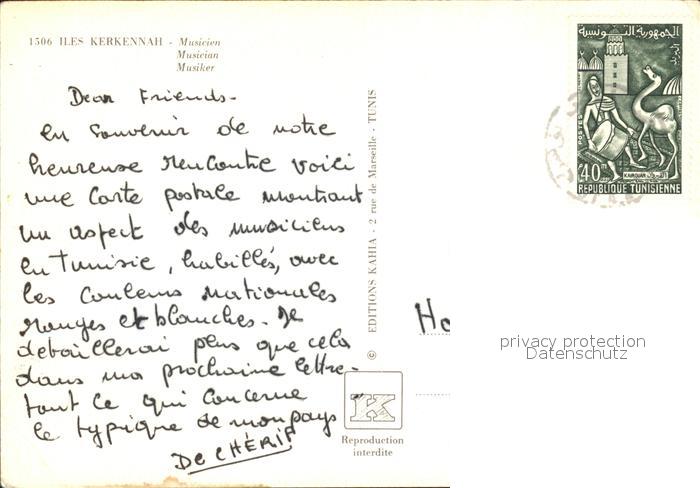 1506 ILES KERKENNAH - Musicien
Musician
Musiker
Dear Friends -
en souvenir de notre
heureuse rencontre voici
une carte postale montrant
un aspect des musiciens
en Tunisie, habillés, avec
les couleurs nationales
rouges et blanches. Je
detaillerai plus que cela
dans ma prochaine lettre -
tout ce qui concerne
le typique de mon pays
De CHÉRIF
© EDITIONS KAHIA - 2 rue de Marseille - TUNIS
K
Reproduction
interdite
الجمهورية التونسية
البريد
POSTES
40
KAIROUAN القيروان
REPUBLIQUE TUNISIENNE
Ho
privacy protection
Datenschutz